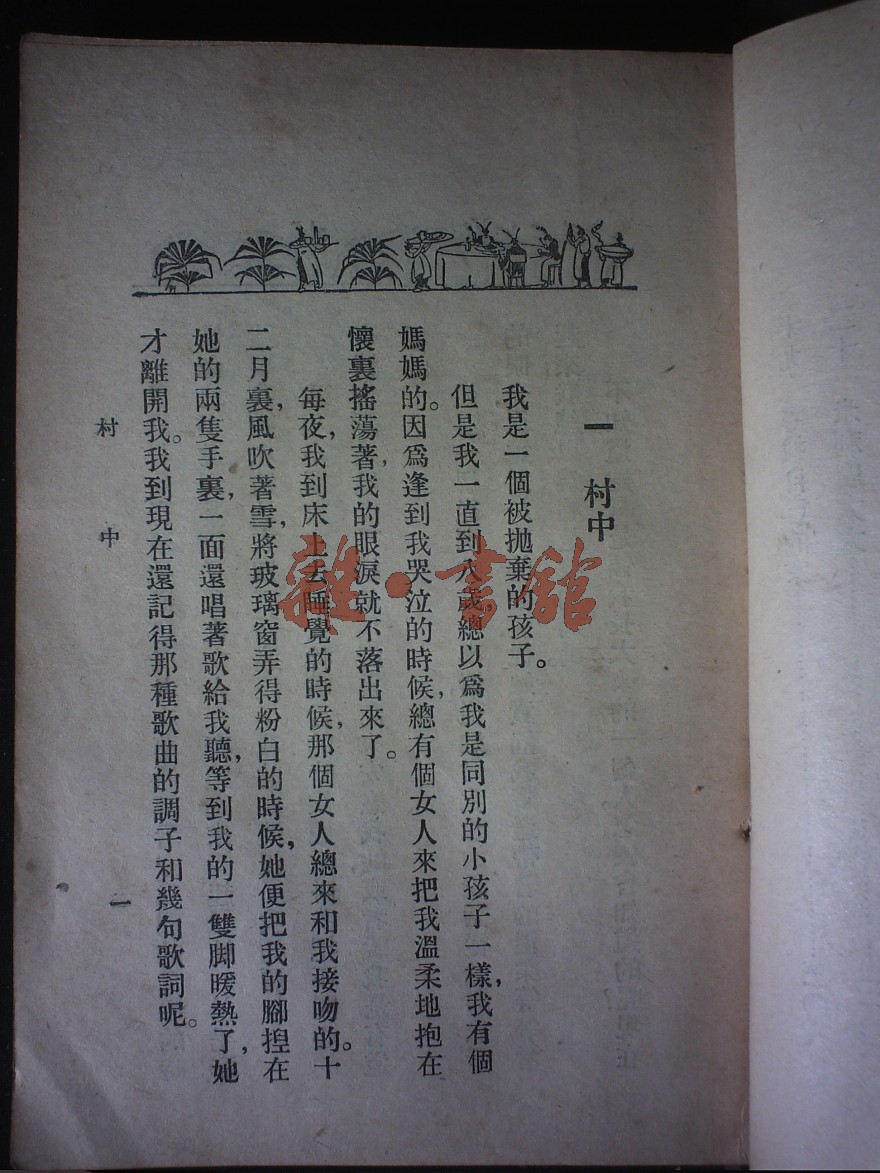 一 村中
我是一個被抛棄的孩子。
但是我一直到八歲，總以爲我是同別的小孩子一樣，我有個
媽媽的。因爲逢到我哭泣的時候，總有個女人來把我溫柔地抱在
懷裏搖蕩著，我的眼淚就不落出來了。
每夜，我到床上去睡覺的時候，那個女人總來和我接吻的。十
二月裏，風吹著雪，將玻璃窗弄得粉白的時候，她便把我的腳揑在
她的兩隻手裏，一面還唱著歌給我聽，等到我的一雙脚暖熱了，她
才離開我。我到現在還記得那種歌曲的調子和幾句歌詞呢。
村中
一
雜·書館